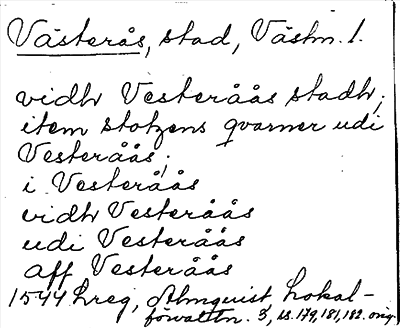 Västerås, stad, Västm. l.
vidh Vesteråås stadh;
item slotzens qvarner udi
Vesteråås;
i Vesteråås
vidh Vesteråås
udi Vesteråås
aff Vesteråås
1544 hreg, Almquist, Lokal-
förvaltn. 3, s. 179, 181, 182. orig.